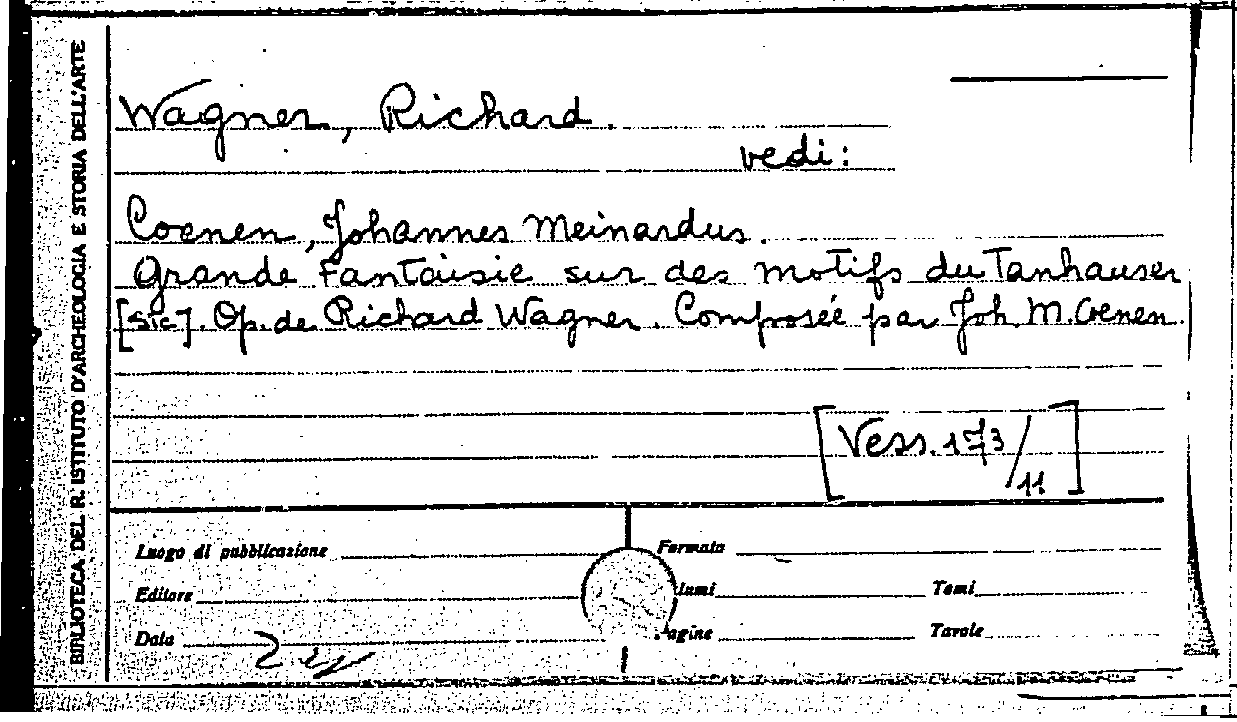 BIBLIOTECA DEL R. ISTITUTO D'ARCHEOLOGIA E STORIA DELL'ARTE
Wagner, Richard.
vedi:
Coenen, Johannes Meinardus.
Grande Fantaisie sur des motifs du Tanhauser
[sic]. Op. de Richard Wagner. Composée par Joh. M. Coenen.
[Vess. 173/11]
Luogo di pubblicazione Formato
Editore lumi Tomi
Data agine Tavole